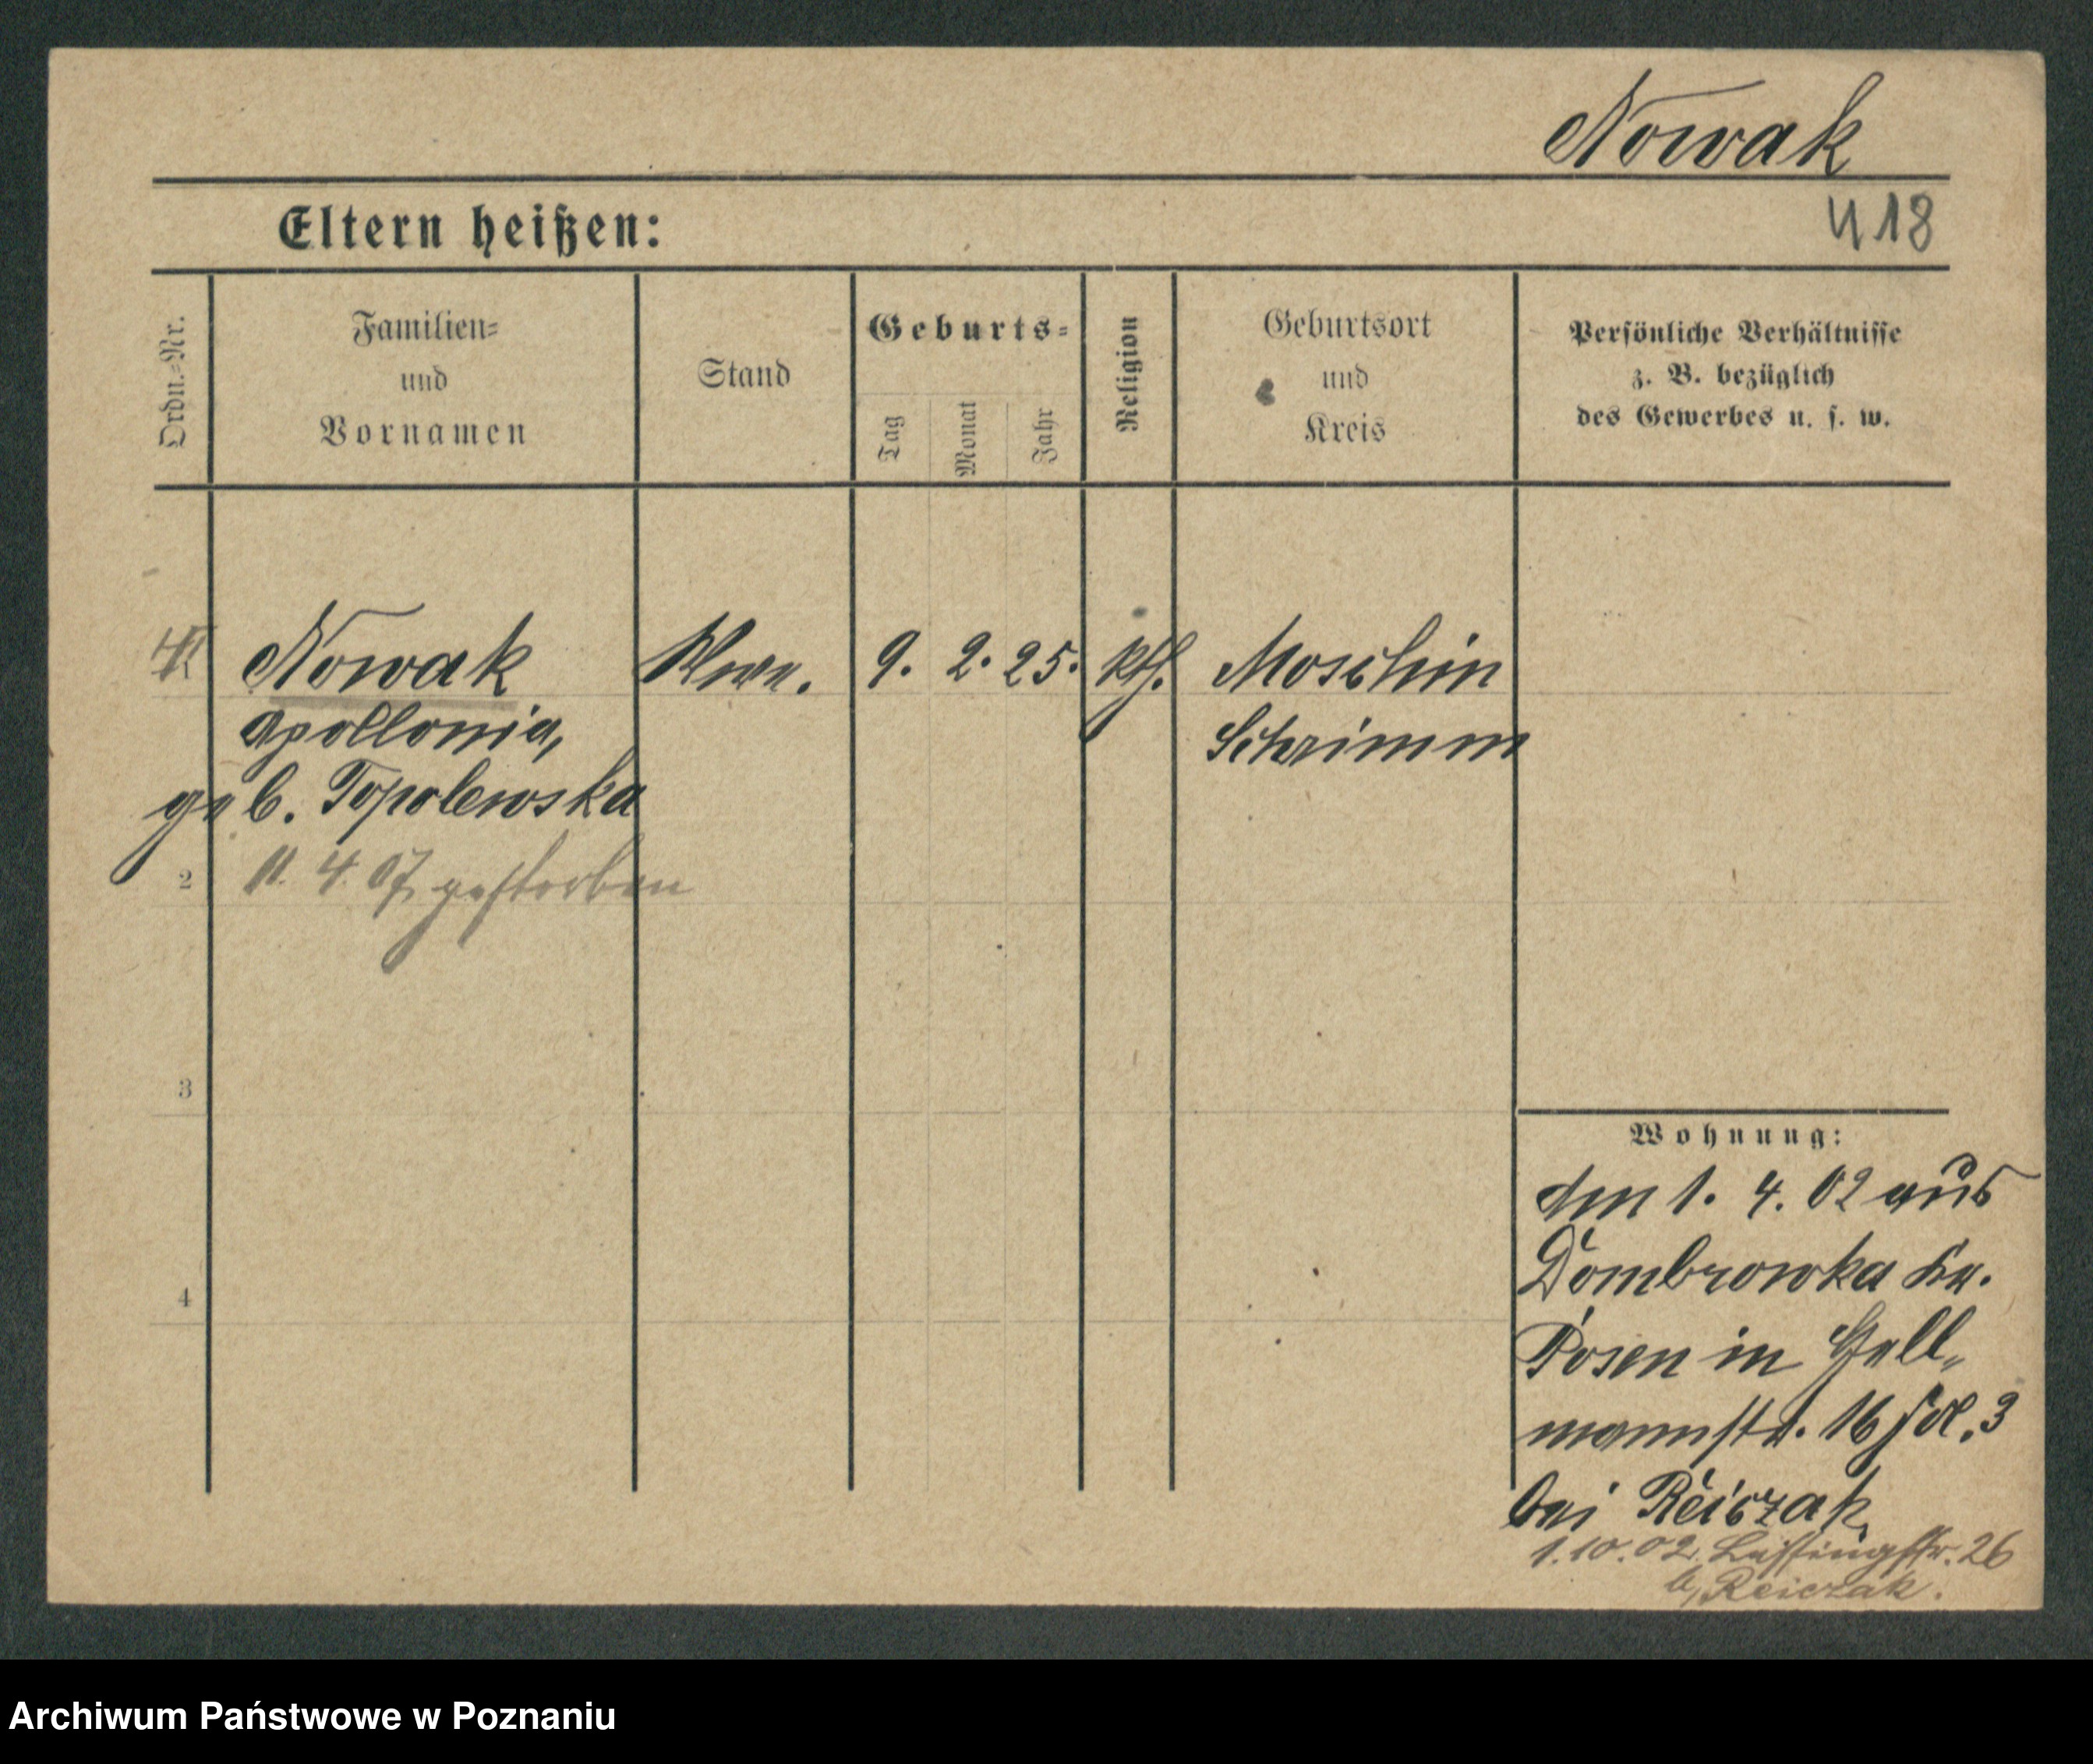 Nowak
418
Eltern heißen:
Ordn.-Nr.
Familien-
und
Vornamen
Stand
Geburts-
Tag
Monat
Jahr
Religion
Geburtsort
und
Kreis
Persönliche Verhältnisse
z. B. bezüglich
des Gewerbes u. s. w.
Nowak Wwe. 9. 2. 25. kth. Moschin
Apollonia, Schrimm
geb. Topolewska
2 11. 4. 07 gestorben
3
4
Wohnung:
Am 1. 4. 02 aus
Dombrowka Kr.
Posen in Hell„
mannstr. 16 fol. 3
bei Reiczak
1.10.02. Lessingstr. 26
b, Reiczak.
Archiwum Państwowe w Poznaniu